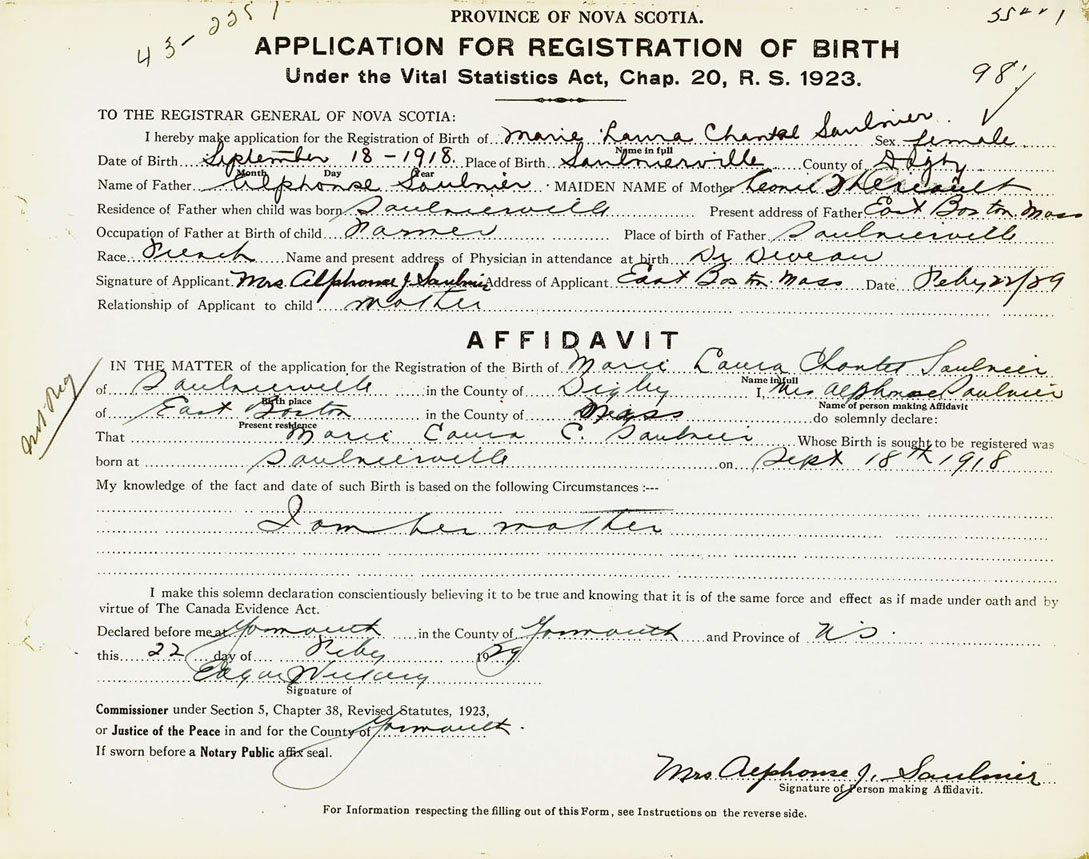 43-2251
PROVINCE OF NOVA SCOTIA.
APPLICATION FOR REGISTRATION OF BIRTH
Under the Vital Statistics Act, Chap. 20, R. S. 1923.
98
TO THE REGISTRAR GENERAL OF NOVA SCOTIA:
I hereby make application for the Registration of Birth of Marie Laura Chantal Saulnier Sex female
Name in full
Date of Birth September 18-1918. Place of Birth Saulnierville County of Digby
Month Day Year
Name of Father Alphonse Saulnier MAIDEN NAME of Mother Leonie Theriault
Residence of Father when child was born Saulnierville Present address of Father East Boston Mass
Occupation of Father at Birth of child Farmer Place of birth of Father Saulnierville
Race French Name and present address of Physician in attendance at birth Dr Diveau
Signature of Applicant Mrs. Alphonse J. Saulnier Address of Applicant East Boston Mass Date Feby 22/29
Relationship of Applicant to child mother
AFFIDAVIT
IN THE MATTER of the application for the Registration of the Birth of Marie Laura Chantal Saulnier
Name in full
of Saulnierville in the County of Digby I, Mrs Alphonse Saulnier
Birth place Name of person making Affidavit
of East Boston in the County of Mass do solemnly declare:
Present residence
Not Reg
That Marie Laura C. Saulnier Whose Birth is sought to be registered was
born at Saulnierville on Sept 18th 1918
My knowledge of the fact and date of such Birth is based on the following Circumstances :---
I am her mother
I make this solemn declaration conscientiously believing it to be true and knowing that it is of the same force and effect as if made under oath and by
virtue of The Canada Evidence Act.
Declared before me at Yarmouth in the County of Yarmouth and Province of N S.
this 22 day of Feby 1929
Edgar
Signature of
Commissioner under Section 5, Chapter 38, Revised Statutes, 1923,
or Justice of the Peace in and for the County of Yarmouth.
If sworn before a Notary Public affix seal.
Mrs Alphonse J. Saulnier
Signature of Person making Affidavit.
For Information respecting the filling out of this Form, see Instructions on the reverse side.